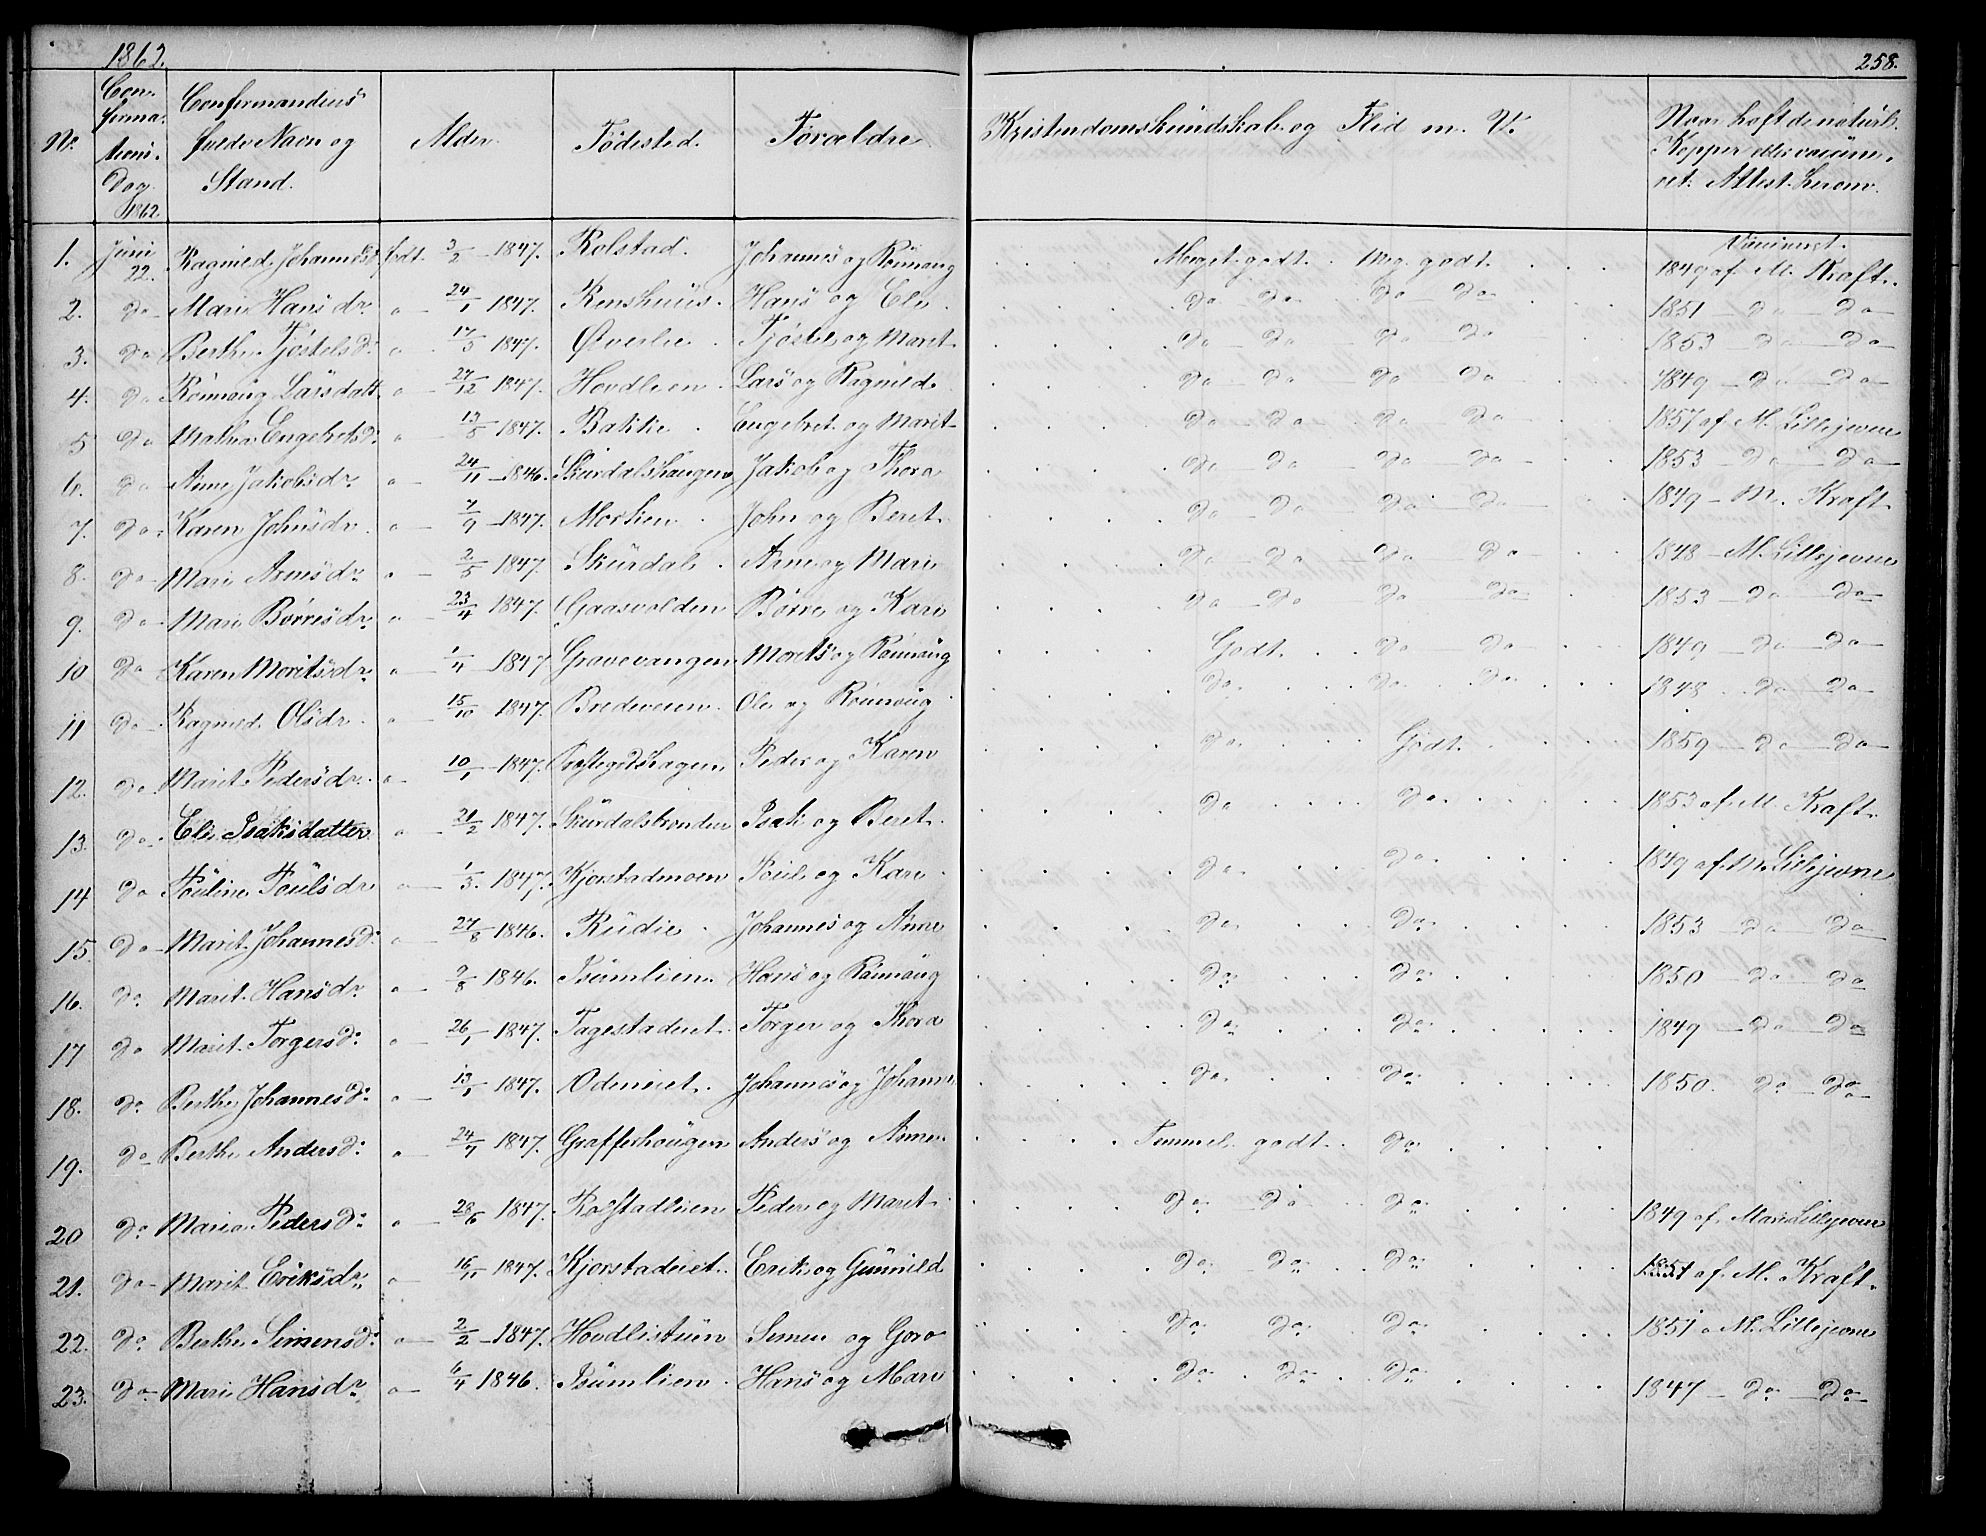 1862.
258.
No. Con- firma- tions- Dag 1862 Confirmandens fulde Navn og Stand. Alder. Födested. Forældre Kristendomskundskab og Flid m. V. Naar haft de naturl. Kopper eller vaccine- ret. Attest herom.
Vaccineret.
1. Juni 22. Ragnild Johannesd. födt 3/2 1847. Rolstad. Johannes og Rönnaug Meget godt. Meg. godt. 1849 af M. Kraft.
2. Do Mari Hansdr. " 24/1 1847. Kongshuus. Hans og Eli Do Do Do Do 1851 Do Do
3. Do Berthe Tjöstelsd. " 17/5 1847. Överlie. Tjöstel og Marit Do Do Do Do 1853 Do Do
4. Do Rönnaug Larsdatt. " 27/12 1847. Hovdlien. Lars og Ragnild. Do Do Do Do 1849 Do Do
5 Do Mathea Engebretsd. " 13/8 1847. Bakke. Engebret og Marit Do Do Do Do 1857 af M. Lillejevne
6. Do Anne Jakobsdr. " 24/11 1846. Skurdalshaugen Jakob og Thora Do Do Do Do 1853 Do Do
7. Do Karen Johnsdr. " 7/9 1847. Morken. John og Beret. Do Do Do Do 1849 M. Kraft.
8. Do Mari Arnesdr. " 2/5 1847. Skurdal. Arne og Mari Do Do Do Do 1848 M. Lillejevne
9. Do Mari Börresdr. " 23/4 1847. Gaasvolden Börre og Kari Do Do Do Do 1853 Do Do
10 Do Karen Moritsdr. " 1/4 1847 Gravevangen Morits og Rönnaug Godt. Do Do 1849 Do Do
11 Do Ragnild Olsdr. " 15/10 1847. Bredeveien. Ole og Rönnaug Do Do Do 1848 Do Do
12. Do Marit Pedersdr. " 10/1 1847. Peder og Karen Do Godt. 1859 Do Do
13. Do Eli Isaksdatter " 21/2 1847. Skurdalsbronden Isak og Beret. Do Do 1853 af M. Kraft.
14 Do Pauline Poulsdr. " 1/3. 1847. Kjorstadmoen Poul og Kari Do Do 1849 af M. Lillejevne
15. Do Marit Johannesd. " 27/8 1846. Rudie. Johannes og Anne Do Do 1853 Do Do
16. Do Marit Hansdr. " 9/8 1846. Isumlien. Hans og Rönnaug Do Do 1850 Do Do
17 Do Marit Torgersd. " 26/1 1847. Tagestadeiet. Torger og Thora Do Do 1849 Do Do
18. Do Berthe Johannesd. " 13/1 1847. Odeneiet. Johannes og Johanne Do Do 1850. Do Do
19. Do Berthe Andersd. " 24/7 1847. Grafferhougen Anders og Anne Temmel. godt. Do
20 Do Maria Pedersd. " 28/6 1847. Rolstadlien Peder og Marit Do Do Do 1849 af Mari Lillejevne
21. Do Marit Eriksdr. " 16/11 1847. Kjorstadeiet. Erik og Gunnild Do Do Do 1851 af M. Kraft.
22. Do Berthe Simensd. " 2/2 1847. Hovdlistuen Simen og Goro Do Do Do 1851 " M. Lillejevne
23. Do Mari Hansdr. " 6/4 1846. Isumlien. Hans og Mari Do Do Do 1847 Do Do